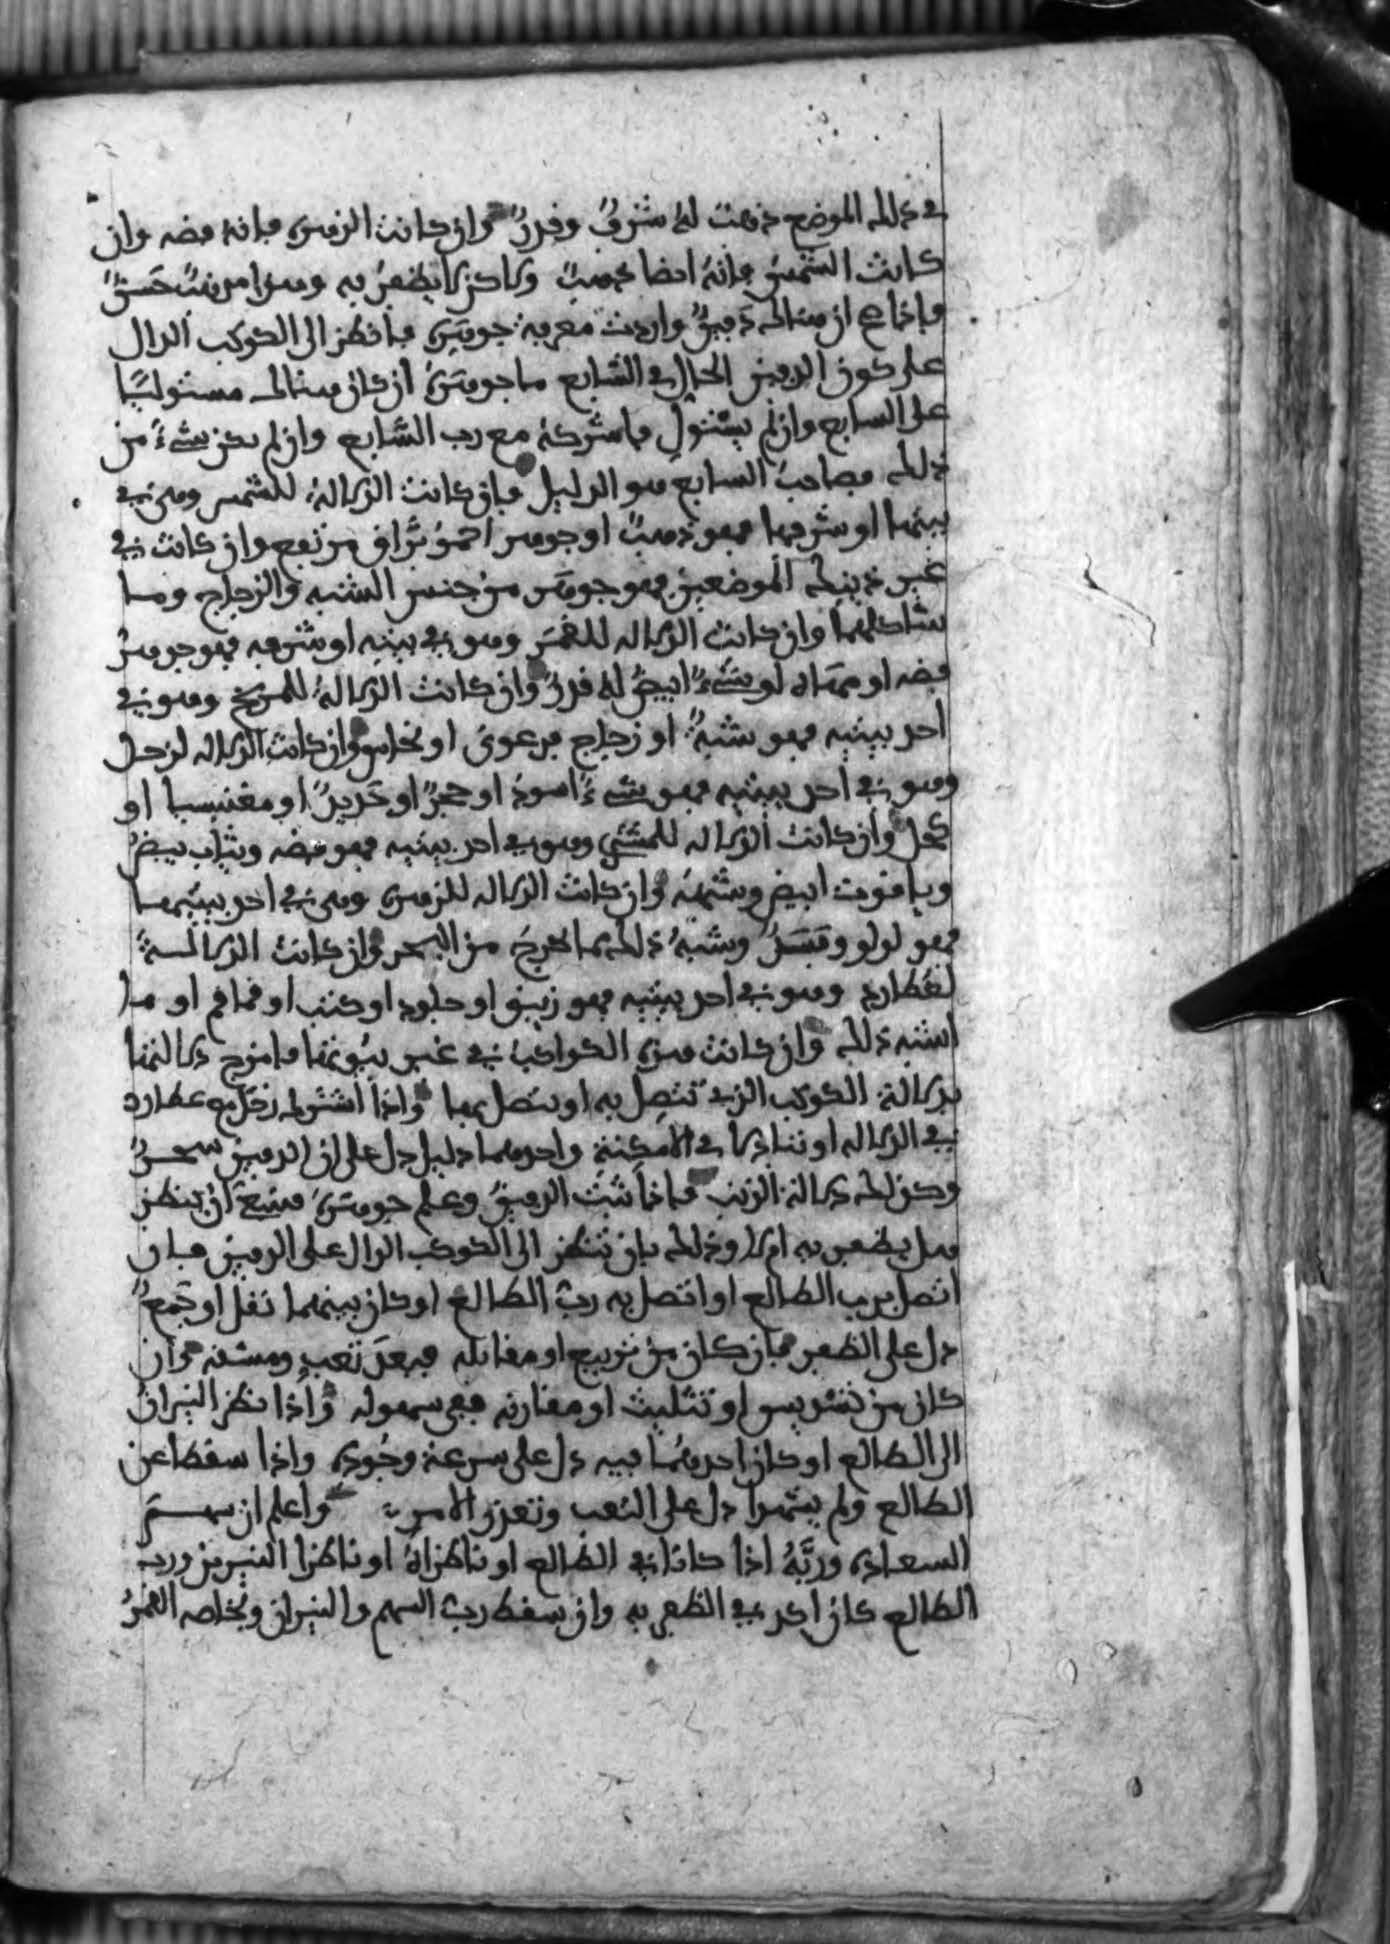 في ذلك الموضع ذهبٌ له شرفٌ وقدرٌ وان كانت الزهره فانه فضه وان
كانت الشمس فانه ايضا ذهبٌ ولاكن لا يظفر به وهذا مرتبٌ حسنٌ
فاذا صح ان هنالك دفينٌ واردت معرفة جوهره فانظر الى الكوكب الدال
على كون الدفين الحال في السابع ما جوهره ان كان هنالك مستوليًا
على السابع وان لم يستول فاشركه مع رب السابع وان لم يكن شيءٌ من
ذلك فصاحب السابع هو الدليل فان كانت الدلالة للشمس وهي في
بيتها او شرفها فهو ذهبٌ او جوهر احمر براق مرتفع وان كانت في
غير ذينك الموضعين فهو جوهر من جنس الشبه والزجاج وما
شاكلهما وان كانت الدلاله للقمر وهو في بيته او شرفه فهو جوهر
فضه او مهاه او شيءٌ ابيض له قدرٌ وان كانت الدلالة للمريخ وهو في
احد بيتيه فهو شبهٌ او زجاج فرعوني او نحاس وان كانت الدلاله لزحل
وهو في احد بيتيه فهو شيءٌ اسود او حجرٌ او حديدٌ او مغنيسيا او
كحل وان كانت الدلاله للمشتري وهو في احد بيتيه فهو فضه وثياب بيضٌ
وياقوت ابيض وشبهه وان كانت الدلاله للزهره وهي في احد بيتيها
فهو لولو وشبه ذلك مما يخرج من البحر وان كانت الدلالة
لعطارد وهو في احد بيتيه فهو زيبق او جلود او كتب او قماقم او ما
اشبه ذلك وان كانت هذه الكواكب في غير بيوتها فامزج دلالتها
بدلالة الكوكب الذي تتصل به او يتصل بها واذا اشترك زحل مع عطارد
في الدلاله او تبادلا في الامكنة واحدهما دليل دل على ان الدفين سحرٌ
وكذلك دلالة الذنب فاذا ثبت الدفين وعلم جوهره فينبغي ان ينظر
هل يظفر به ام لا وذلك بان تنظر الى الكوكب الدال على الدفين فان
اتصل برب الطالع او اتصل به رب الطالع او كان بينهما نقل او جمعٌ
دل على الظفر فان كان من تربيع او مقابله فبعد تعب ومشقه وان
كان من تسديس او تثليث او مقارنه ففي سهوله واذا نظر النيران
الى الطالع او كان احدهما فيه دل على سرعة وجوده واذا سقطا عن
الطالع ولم يشهدا دل على التعب وتعذر الامر واعلم ان سهم
السعاده وربه اذا كانا في الطالع او ناظراه او ناظرا النيرين ورب
الطالع كان اكد في الظفر به وان سقط رب السهم والنيران وبخاصه القمر